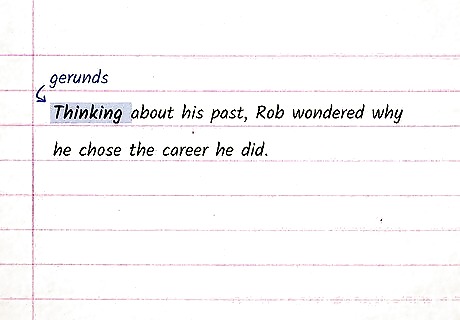 gerunds
Thinking about his past, Rob wondered why
he chose the career he did.